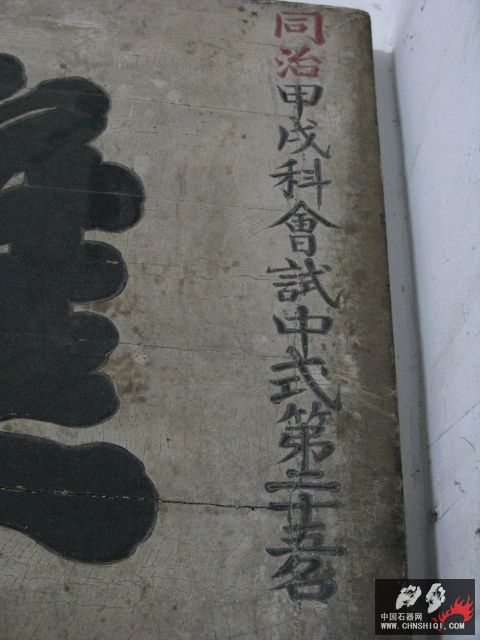 同治甲戌科會試中式第二十五名
中国石器网
WWW.CHNSHIQI.COM